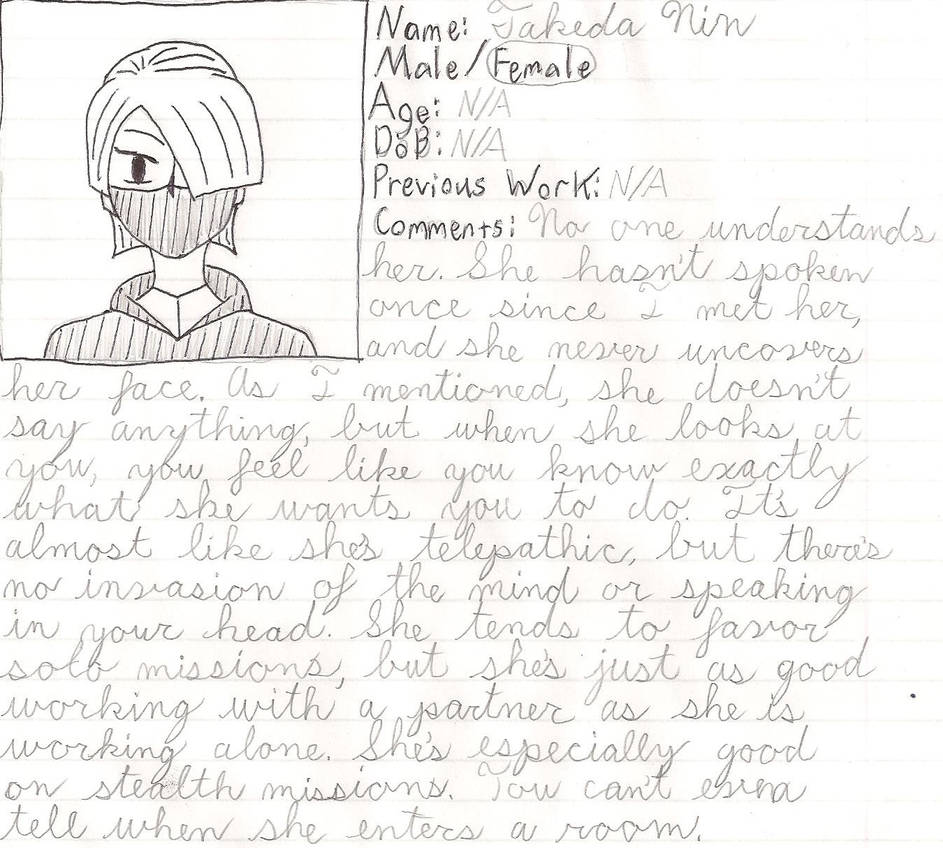 Name: Takeda Nin
Male/Female
Age: N/A
DoB: N/A
Previous Work: N/A
Comments: No one understands
her. She hasn't spoken
once since I met her,
and she never uncovers
her face. As I mentioned, she doesn't
say anything, but when she looks at
you, you feel like you know exactly
what she wants you to do. It's
almost like she's telepathic, but there's
no invasion of the mind or speaking
in your head. She tends to favor
solo missions, but she's just as good
working with a partner as she is
working alone. She's especially good
on stealth missions. You can't even
tell when she enters a room.